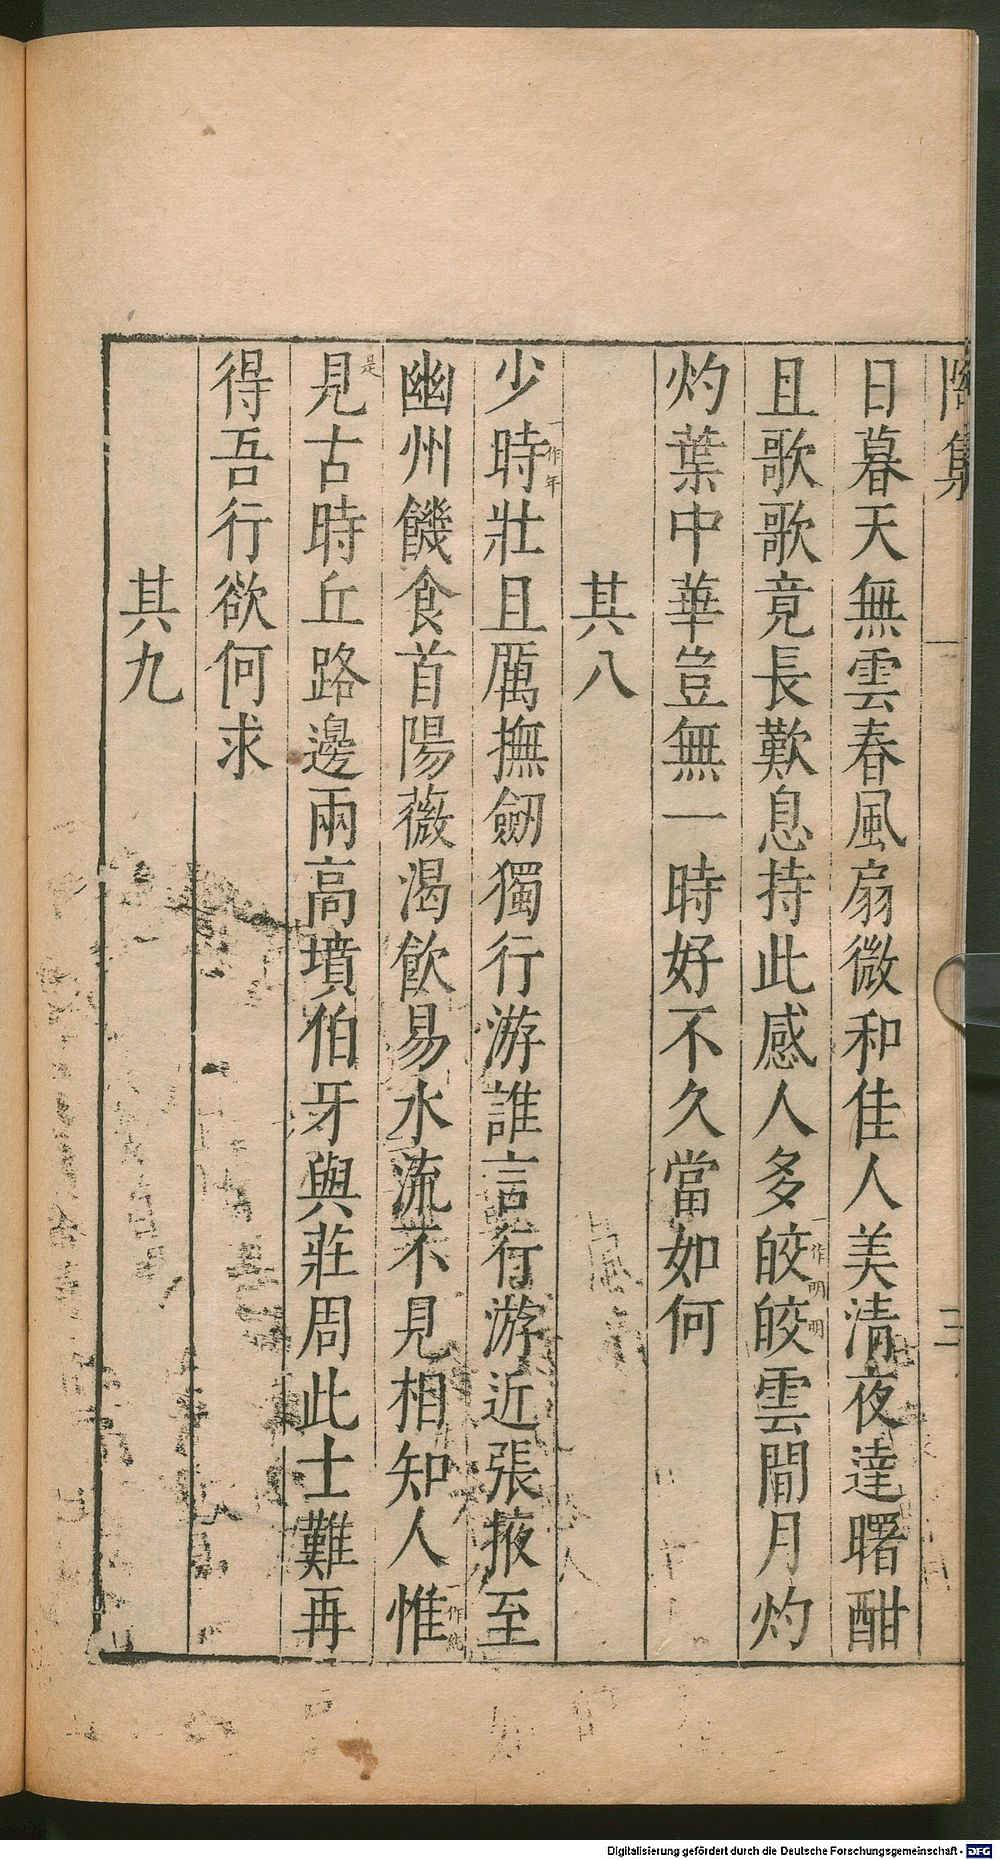 陶集
二
日暮天無雲春風扇微和佳人美清夜達曙酣
且歌歌竟長歎息持此感人多皎皎一作明明雲間月灼
灼葉中華豈無一時好不久當如何
其八
少時一作年壯且厲撫劒獨行游誰言行游近張掖至
幽州饑食首陽薇渴飲易水流不見相知人惟一作純
見是古時丘路邊兩高墳伯牙與莊周此士難再
得吾行欲何求
其九
Digitalisierung gefördert durch die Deutsche Forschungsgemeinschaft - DFG